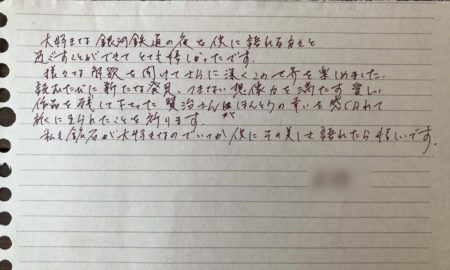 大好きな銀河鉄道の夜を共に語れる方々と
過ごすことができてとても嬉しかったです。
様々な解釈を聞けてさらに深くこの世界を楽しめました。
読むたびに新たな発見、つきない想像力を満たす美しい
作品を残して下さった賢治さんがほんとうの幸いを感じられて
旅に出られたことを祈ります。
私も鉱石が大好きなのでいつか共にその美しさを語れたら嬉しいです。